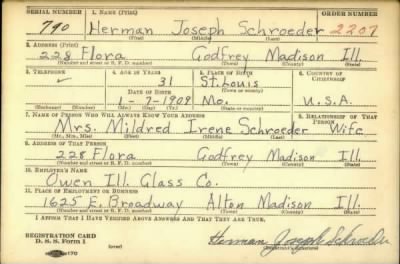 SERIAL NUMBER 1. NAME (Print) ORDER NUMBER
790 Herman Joseph Schroeder 2207
(First) (Middle) (Last)
2. ADDRESS (Print)
228 Flora Godfrey Madison Ill.
(Number and street or R. F. D. number) (Town) (County) (State)
3. TELEPHONE 4. AGE IN YEARS 5. PLACE OF BIRTH 6. COUNTRY OF CITIZENSHIP
✓ 31 St. Louis
DATE OF BIRTH (Town or county)
1-7-1909 Mo. U.S.A.
(Mo.) (Day) (Yr.) (State or country)
7. NAME OF PERSON WHO WILL ALWAYS KNOW YOUR ADDRESS 8. RELATIONSHIP OF THAT PERSON
Mrs. Mildred Irene Schroeder Wife
(Mr., Mrs., Miss) (First) (Middle) (Last)
9. ADDRESS OF THAT PERSON
228 Flora Godfrey Madison Ill.
(Number and street or R. F. D. number) (Town) (County) (State)
10. EMPLOYER'S NAME
Owen Ill. Glass Co.
11. PLACE OF EMPLOYMENT OR BUSINESS
1625 E. Broadway Alton Madison Ill.
(Number and street or R. F. D. number) (Town) (County) (State)
I AFFIRM THAT I HAVE VERIFIED ABOVE ANSWERS AND THAT THEY ARE TRUE.
REGISTRATION CARD
D. S. S. Form 1 (over) Herman Joseph Schroeder
(Registrant's signature)